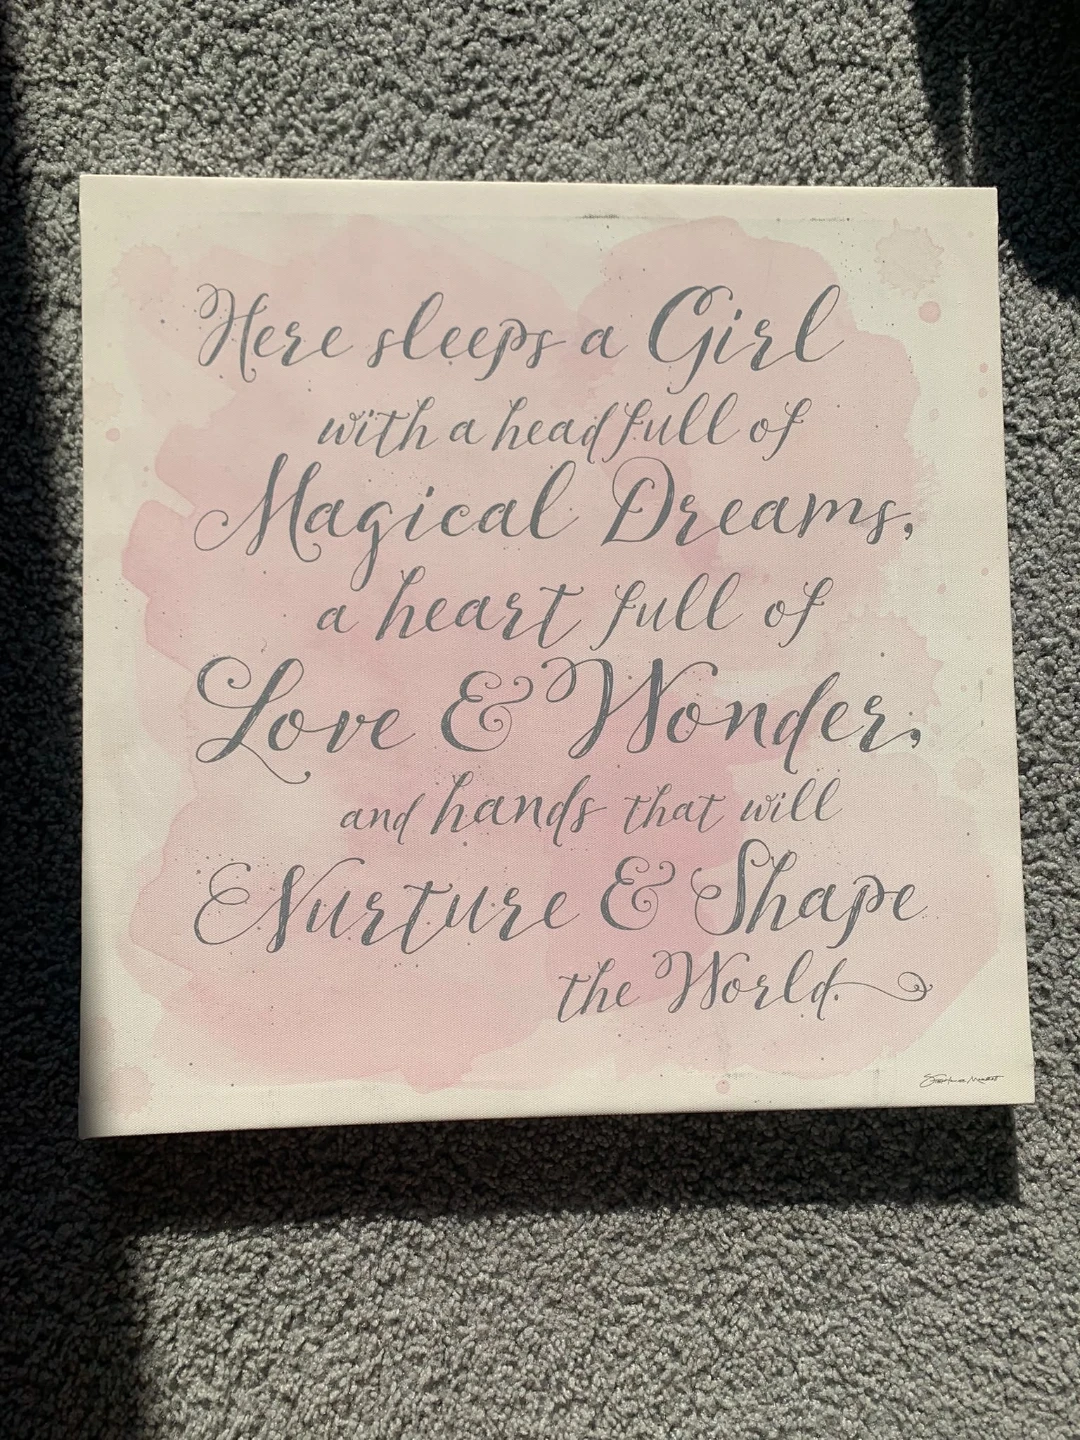 Here sleeps a Girl
with a head full of
Magical Dreams,
a heart full of
Love & Wonder,
and hands that will
Nurture & Shape
the World.